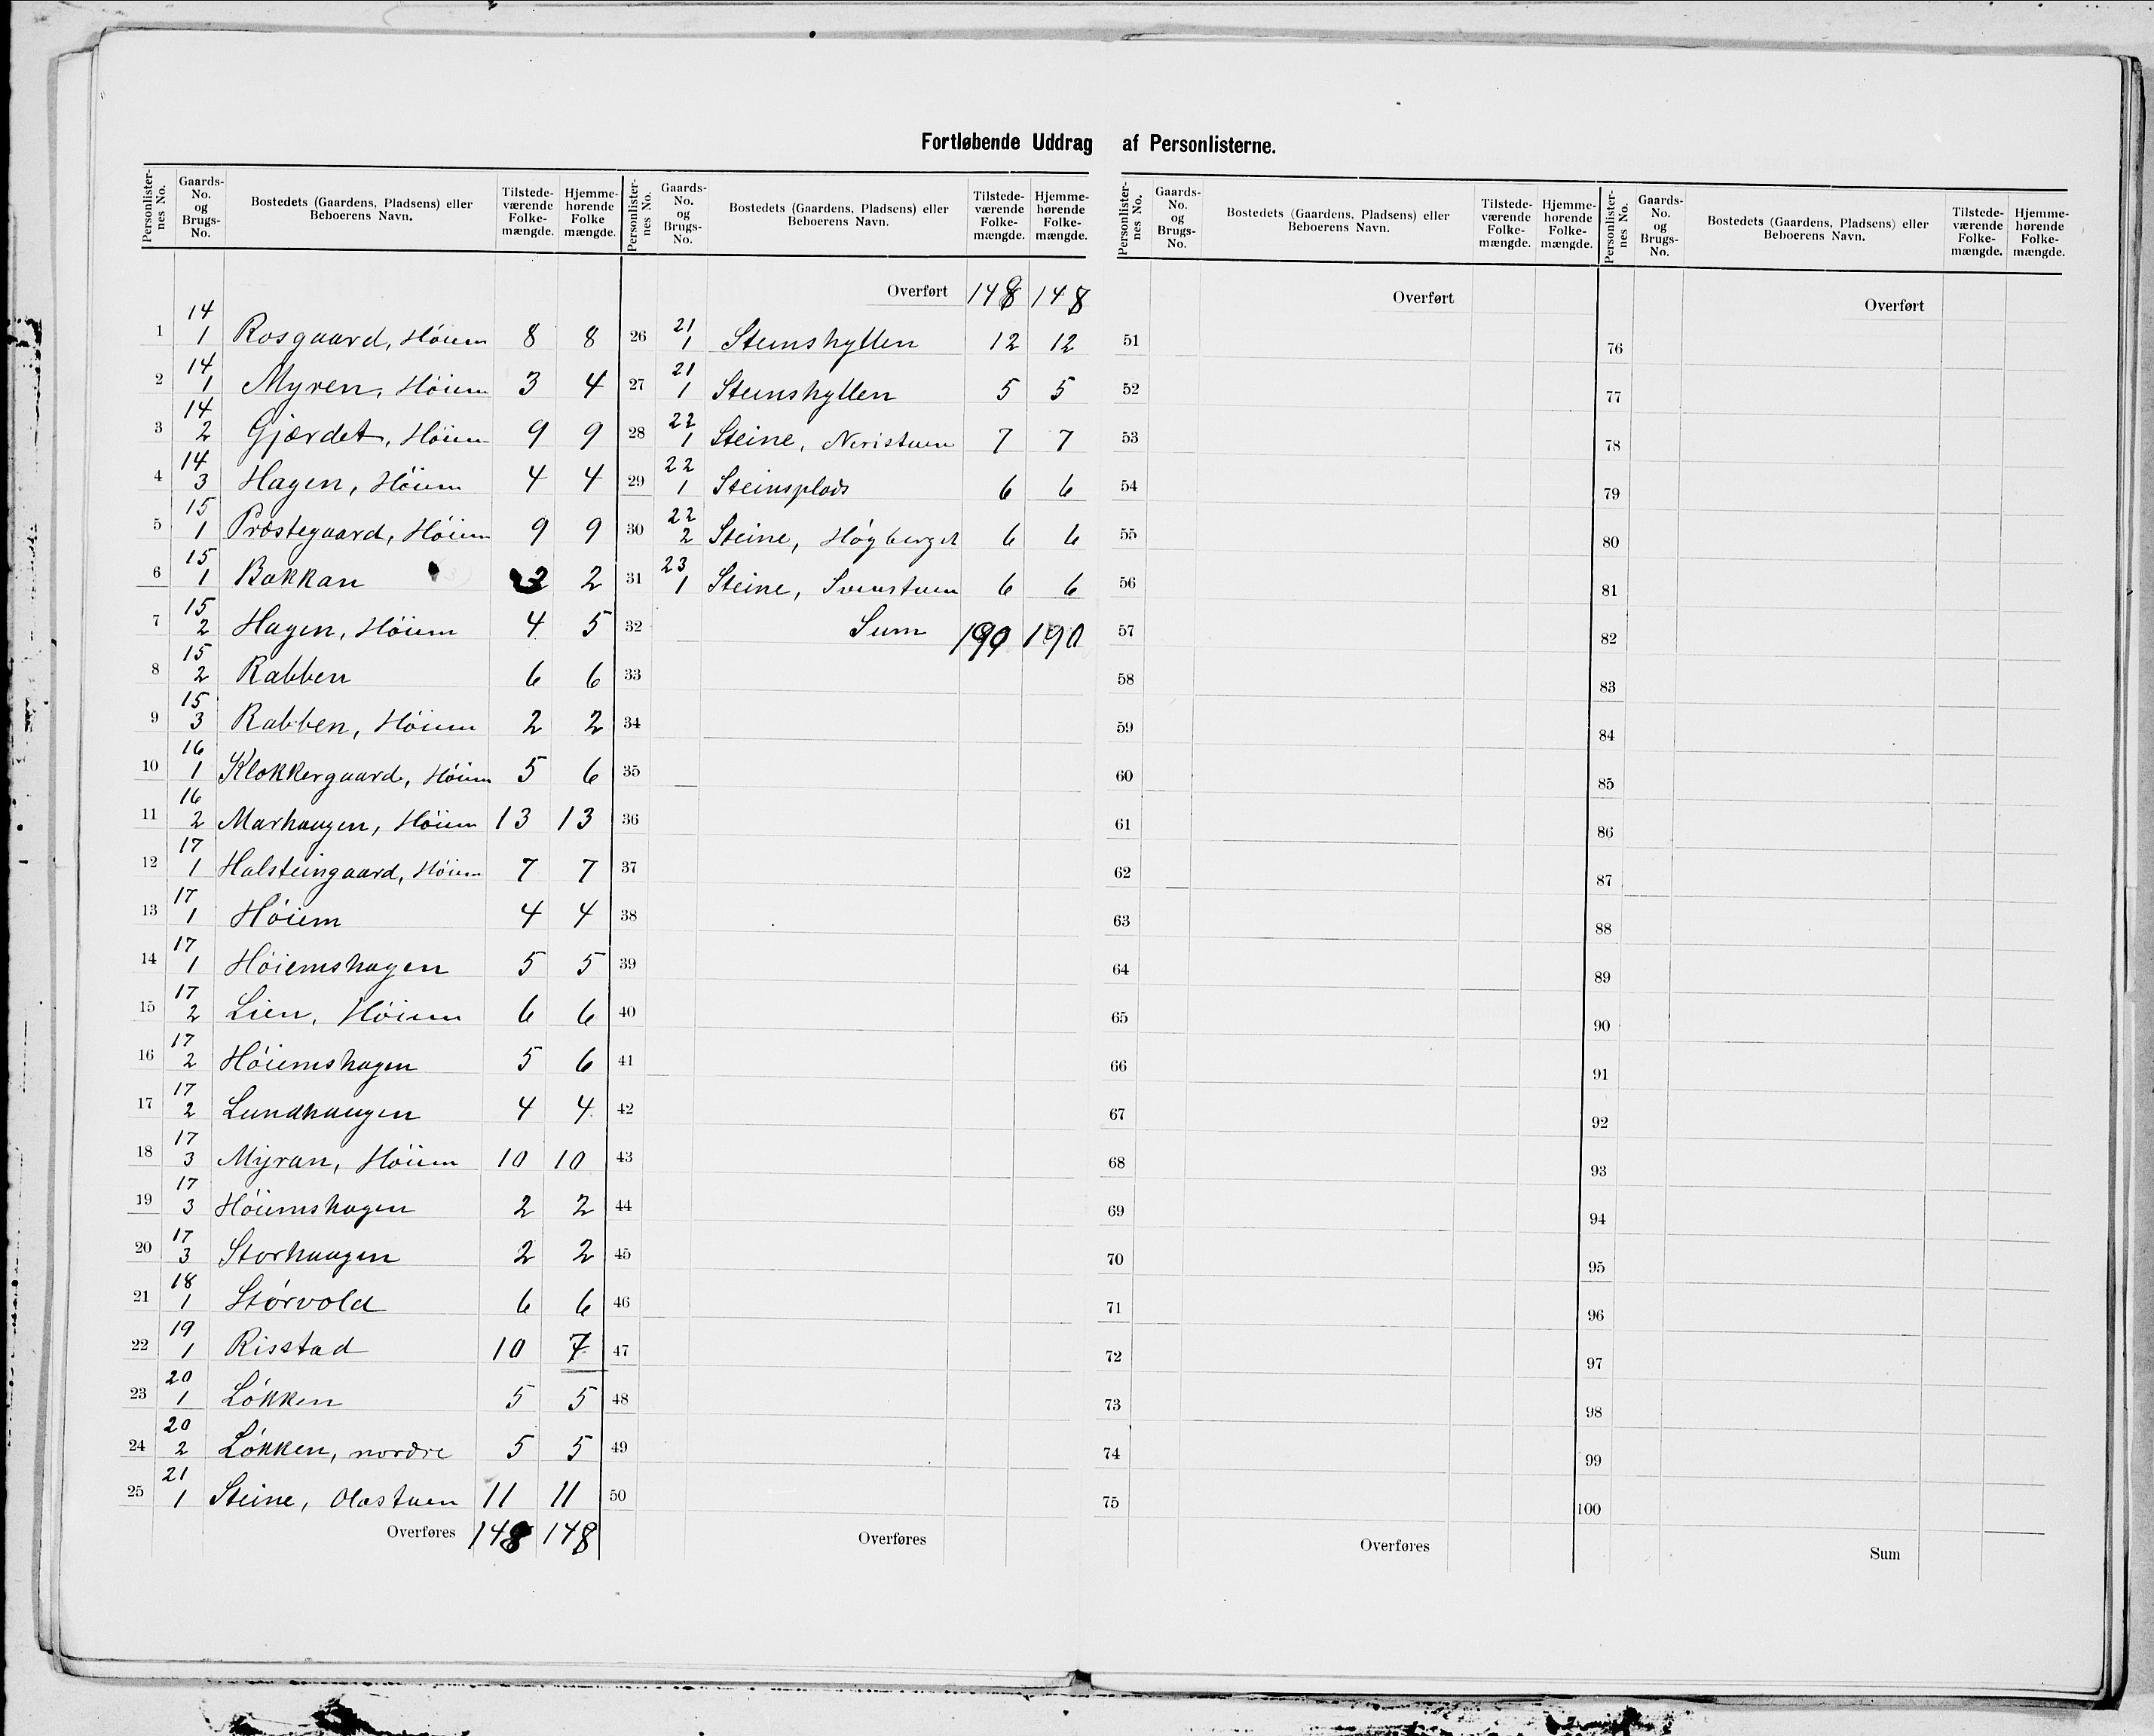 Fortløbende Uddrag af Personlisterne.
Personlister-nes No. Gaards-No. og Brugs-No. Bostedets (Gaardens, Pladsens) eller Beboerens Navn. Tilstede-værende Folke-mængde. Hjemme-hørende Folke mængde.
1 14 1 Rosgaard, Høiem 8 8
2 14 1 Myren, Høiem 3 4
3 14 2 Gjærdet, Høiem 9 9
4 14 3 Hagen, Høiem 4 4
5 15 1 Præstegaard, Høiem 9 9
6 15 1 Bakkan 2 2
7 15 2 Hagen, Høiem 4 5
8 15 2 Rabben 6 6
9 15 3 Rabben, Høiem 2 2
10 16 1 Klokkergaard, Høiem 5 6
11 16 2 Marhaugen, Høiem 13 13
12 17 1 Halsteingaard, Høiem 7 7
13 17 1 Høiem 4 4
14 17 1 Høiemshagen 5 5
15 17 2 Lien, Høiem 6 6
16 17 2 Høiemshagen 5 6
17 17 2 Lundhaugen 4 4
18 17 3 Myran, Høiem 10 10
19 17 3 Høiemshagen 2 2
20 17 3 Storhaugen 2 2
21 18 1 Størvold 6 6
22 19 1 Risstad 10 7
23 20 1 Løkken 5 5
24 20 2 Løkken, nordre 5 5
25 21 1 Steine, Olastuen 11 11
Overføres 148 148
Personlister-nes No. Gaards-No. og Brugs-No. Bostedets (Gaardens, Pladsens) eller Beboerens Navn. Tilstede-værende Folke-mængde. Hjemme-hørende Folke-mængde.
Overført 148 148
26 21 1 Steinshyllen 12 12
27 21 1 Steinshyllen 5 5
28 22 1 Steine, Neristuen 7 7
29 22 1 Steinsplads 6 6
30 22 2 Steine, Høgberget 6 6
31 23 1 Steine, Svenstuen 6 6
32 Sum 190 190
33
34
35
36
37
38
39
40
41
42
43
44
45
46
47
48
49
50
Overføres
Personlister-nes No. Gaards-No. og Brugs-No. Bostedets (Gaardens, Pladsens) eller Beboerens Navn. Tilstede-værende Folke-mængde. Hjemme-hørende Folke-mængde.
Overført
51
52
53
54
55
56
57
58
59
60
61
62
63
64
65
66
67
68
69
70
71
72
73
74
75
Overføres
Personlister-nes No. Gaards-No. og Brugs-No. Bostedets (Gaardens, Pladsens) eller Beboerens Navn. Tilstede-værende Folke-mængde. Hjemme-hørende Folke-mængde.
Overført
76
77
78
79
80
81
82
83
84
85
86
87
88
89
90
91
92
93
94
95
96
97
98
99
100
Sum